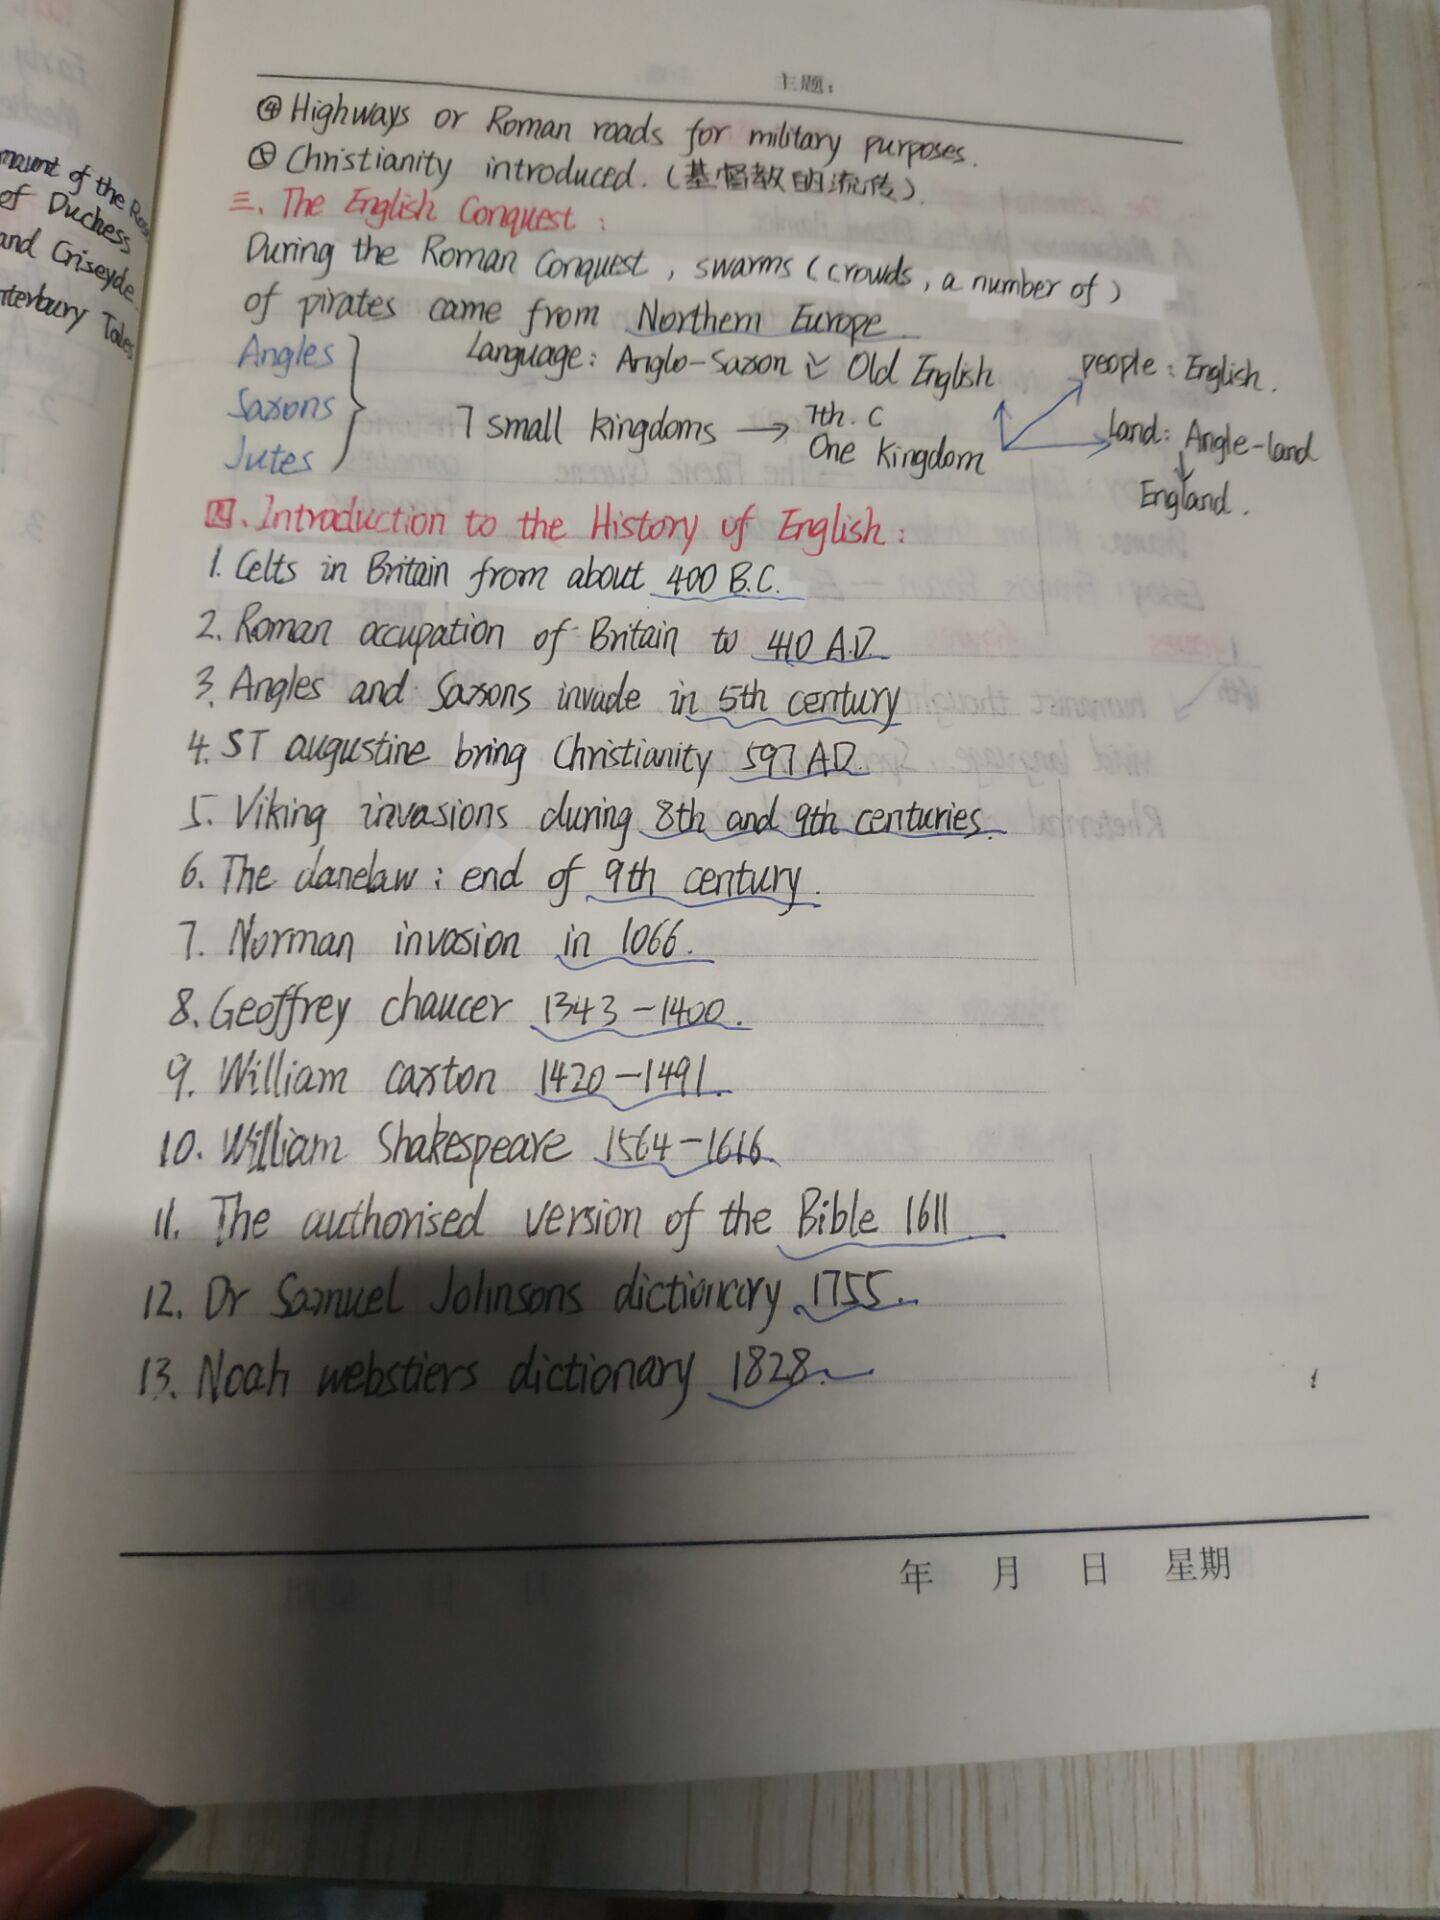 主题:
④ Highways or Roman roads for military purposes.
⑤ Christianity introduced. (基督教的流传).
三. The English Conquest :
During the Roman Conquest, swarms (crowds, a number of)
of pirates came from Northern Europe.
Angles
Saxons
Jutes
Language: Anglo-Saxon ≌ Old English
7 small kingdoms → 7th. C
One kingdom
people: English.
land: Angle-land
↓
England.
四. Introduction to the History of English:
1. Celts in Britain from about 400 B.C.
2. Roman occupation of Britain to 410 A.D.
3. Angles and Saxons invade in 5th century
4. ST augustine bring Christianity 597 AD.
5. Viking invasions during 8th and 9th centuries.
6. The danelaw: end of 9th century.
7. Norman invasion in 1066.
8. Geoffrey chaucer 1343-1400.
9. William caxton 1420-1491.
10. William Shakespeare 1564-1616
11. The authorised version of the Bible 1611
12. Dr Samuel Johnsons dictionary 1755.
13. Noah webstiers dictionary 1828.
年 月 日 星期
of the
of Duchess
and Criseyde
Tales